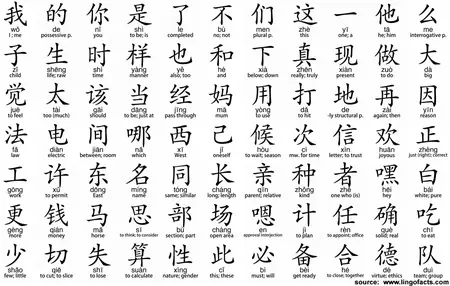 我 的 你 是 了 不 们 这 一 他 么
wǒ de nǐ shì le bù men zhè yī tā me
I; me possessive p. you to be; is complete no; not plural p. this one; a he; him interrogative p.
子 生 时 样 也 和 下 真 现 做 大
zǐ shēng shí yàng yě hé xià zhēn xiàn zuò dà
child life; raw time manner also; too and below; down really; truly present to do big
觉 太 该 当 经 妈 用 打 地 再 因
jué tài gāi dāng jīng mā yòng dǎ de zài yīn
to feel too (much) should to be; just at pass through mum to use to hit -ly structural p. again; then reason
法 电 间 哪 西 己 候 次 信 欢 正
fǎ diàn jiān nǎ xī jǐ hòu cì xìn huān zhèng
law electric between; room which West oneself to wait; season mw. for time letter; to trust joyous just (right); correct
工 许 东 名 同 长 亲 种 者 嘿 白
gōng xǔ dōng míng tóng cháng qīn zhǒng zhě hēi bái
work to permit East name same; similar long; length parent; relative kind one who (is) hey white; pure
更 钱 马 思 部 场 嗯 计 任 确 吃
gèng qián mǎ sī bù chǎng en jì rèn què chī
more money horse to think; to consider section; part open area approval interjection to plan to appoint; office solid; real to eat
少 切 失 算 性 此 必 备 合 德 队
shǎo qiē shī suàn xìng cǐ bì bèi hé dé duì
few; little to cut; to slice to lose to calculate nature; gender this; these must; will get ready to close; together virtue; ethics team; group
source: www.lingofacts.com